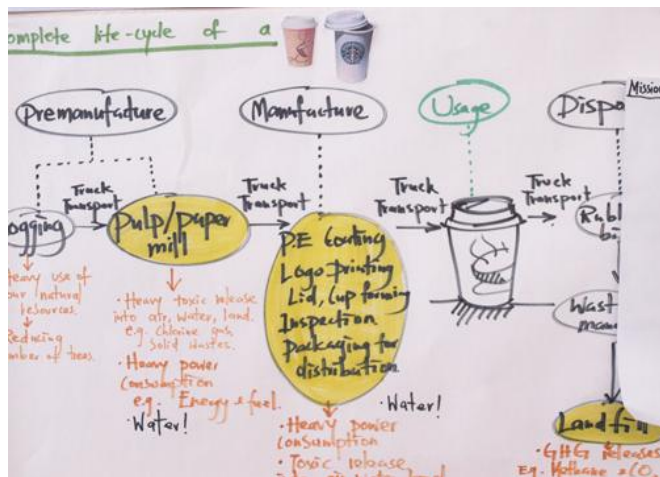 omplete life-cycle of a
Premanufacture
Manufacture
Usage
Dispo
Mission
Truck
Transport
Truck
Transport
Truck
Transport
Truck
Transport
ogging
Pulp/paper
mill
P.E Coating
Logo Printing
Lid, Cup forming
Inspection
Packaging for
distribution
Rubb
bi
Wast
mana
Landfill
Heavy use of
our natural
resources.
Reducing
mber of trees.
• Heavy toxic release
into air, water, land.
e.g. Chlorine gas,
Solid Wastes.
• Heavy power
Consumption
e.g. Energy & fuel.
• Water!
• Water!
• Heavy power
Consumption
• Toxic release
• GHG Releases
Eg. Methane